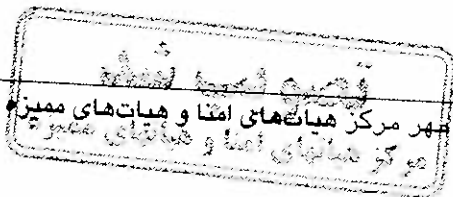 تصویب شد
مهر مرکز هیات‌های امنا و هیات‌های ممیزه
مرکز هیاتهای امنا و هیاتهای ممیزه